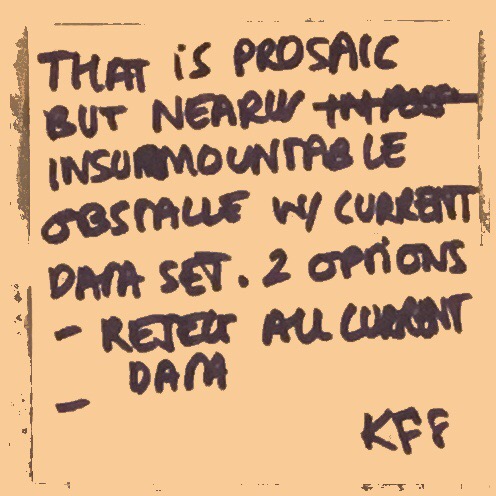 THAT IS PROSAIC
BUT NEARLY
INSURMOUNTABLE
OBSTACLE W/ CURRENT
DATA SET. 2 OPTIONS
- REJECT ALL CURRENT
DATA
-
KFF